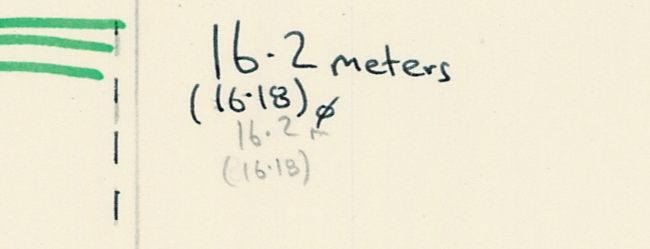 16.2 meters
(16.18) ϕ
16.2 m
(16.18)